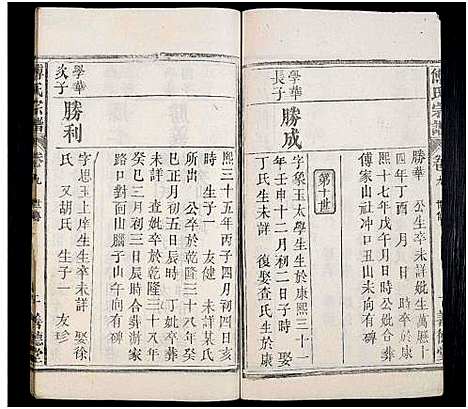 傅氏宗譜
卷九 世傳
勝華 公生卒未詳妣生萬厤十
四年丁酉 月 日 時卒康
熙十七年戊午月日時公妣合葬
傅家山社冲口丑山未向有碑
第十世
學華長子 勝成
字象玉太學生生於康熙三十一
年壬申十二月初二日子時 娶
丁氏生未詳 復娶查氏生於康
熙三十五年丙子四月初四日亥
時 生子一 友健 未詳某氏
所出 公卒於乾隆三十八年
癸巳正月初五日辰時 丁妣卒葬
未詳 查妣卒於乾隆三十八年
癸巳三月初三日辰時 合葬家
路口對面山勝子山午向有碑
學華次子 勝利
字思玉上庠生生卒未詳 娶徐
氏 又胡氏 生子一 友珍
傅氏宗譜
卷九 世傳
善德堂